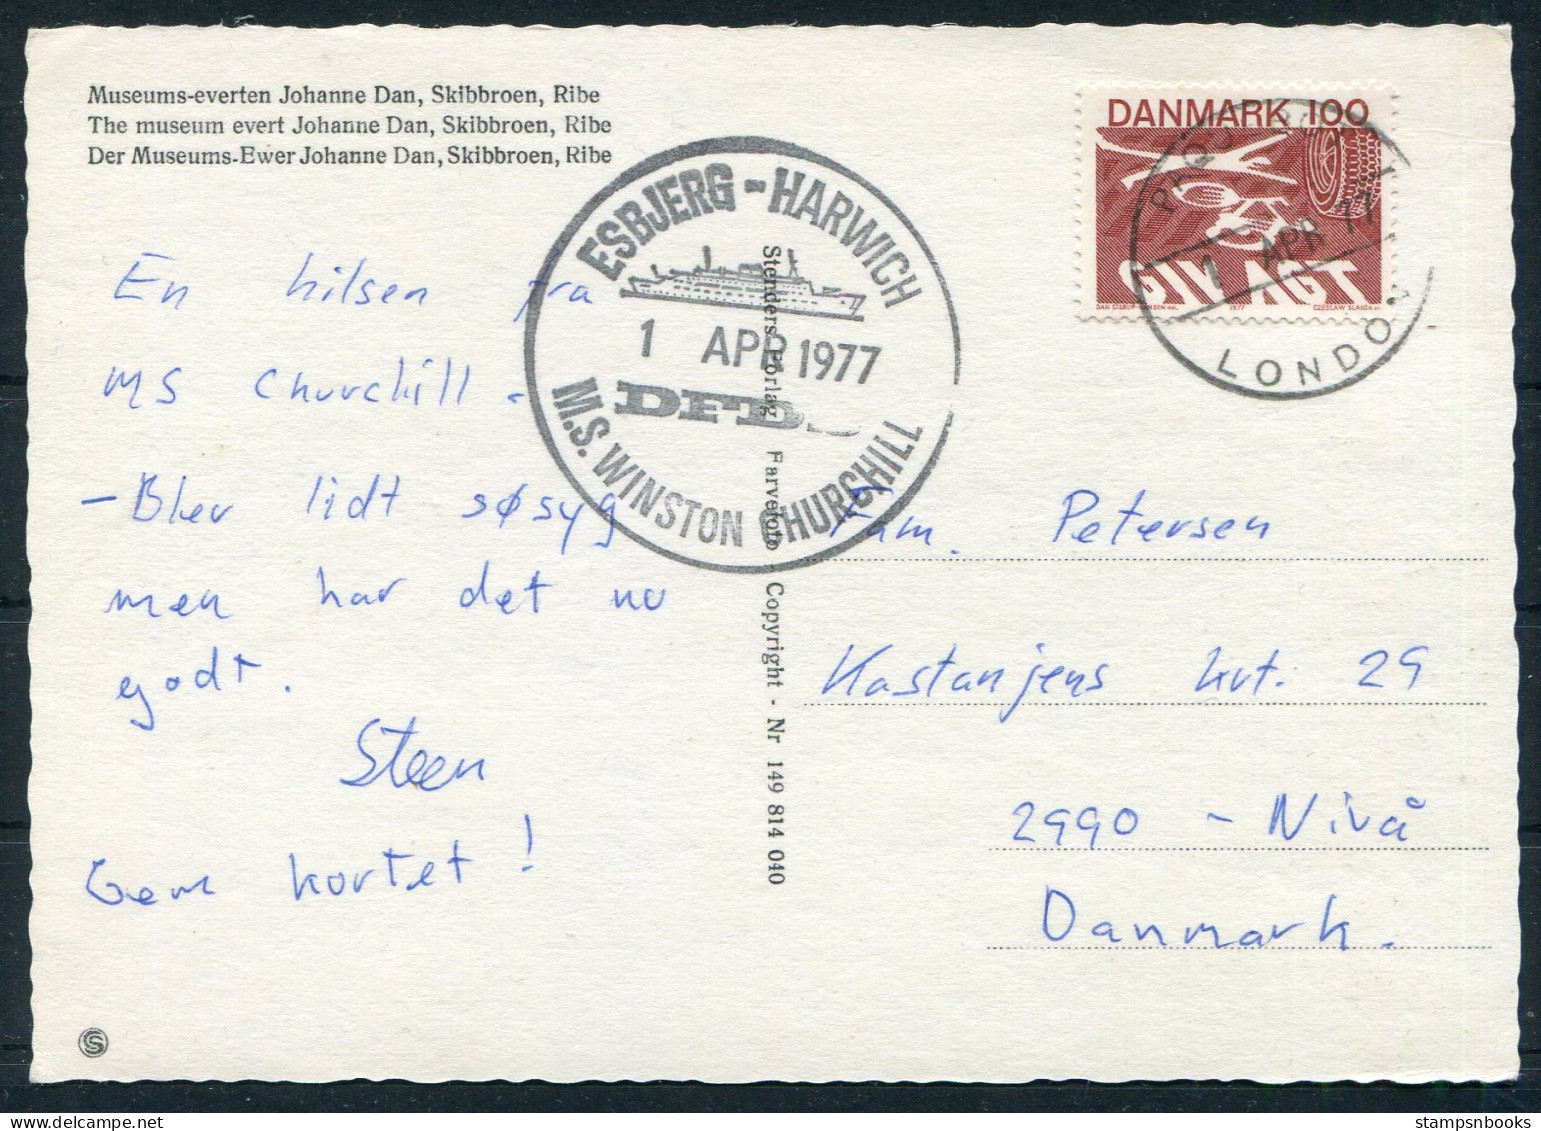 Museums-everten Johanne Dan, Skibbroen, Ribe
The museum evert Johanne Dan, Skibbroen, Ribe
Der Museums-Ewer Johanne Dan, Skibbroen, Ribe
En hilsen fra
MS Churchill.
- Blev lidt søsyg
men har det nu
godt.
Steen
Gem kortet!
ESBJERG - HARWICH
1 APR 1977
DFDS
M.S. WINSTON CHURCHILL
Stenders Forlag Farvefoto - Copyright - Nr 149 814 040
DANMARK 100
GIV AGT
1977
CZESLAW SLANIA
1 APR 77
LONDON
Fam. Petersen
Kastanjens kvt. 29
2990 - Nivå
Danmark.
S
stampsnbooks